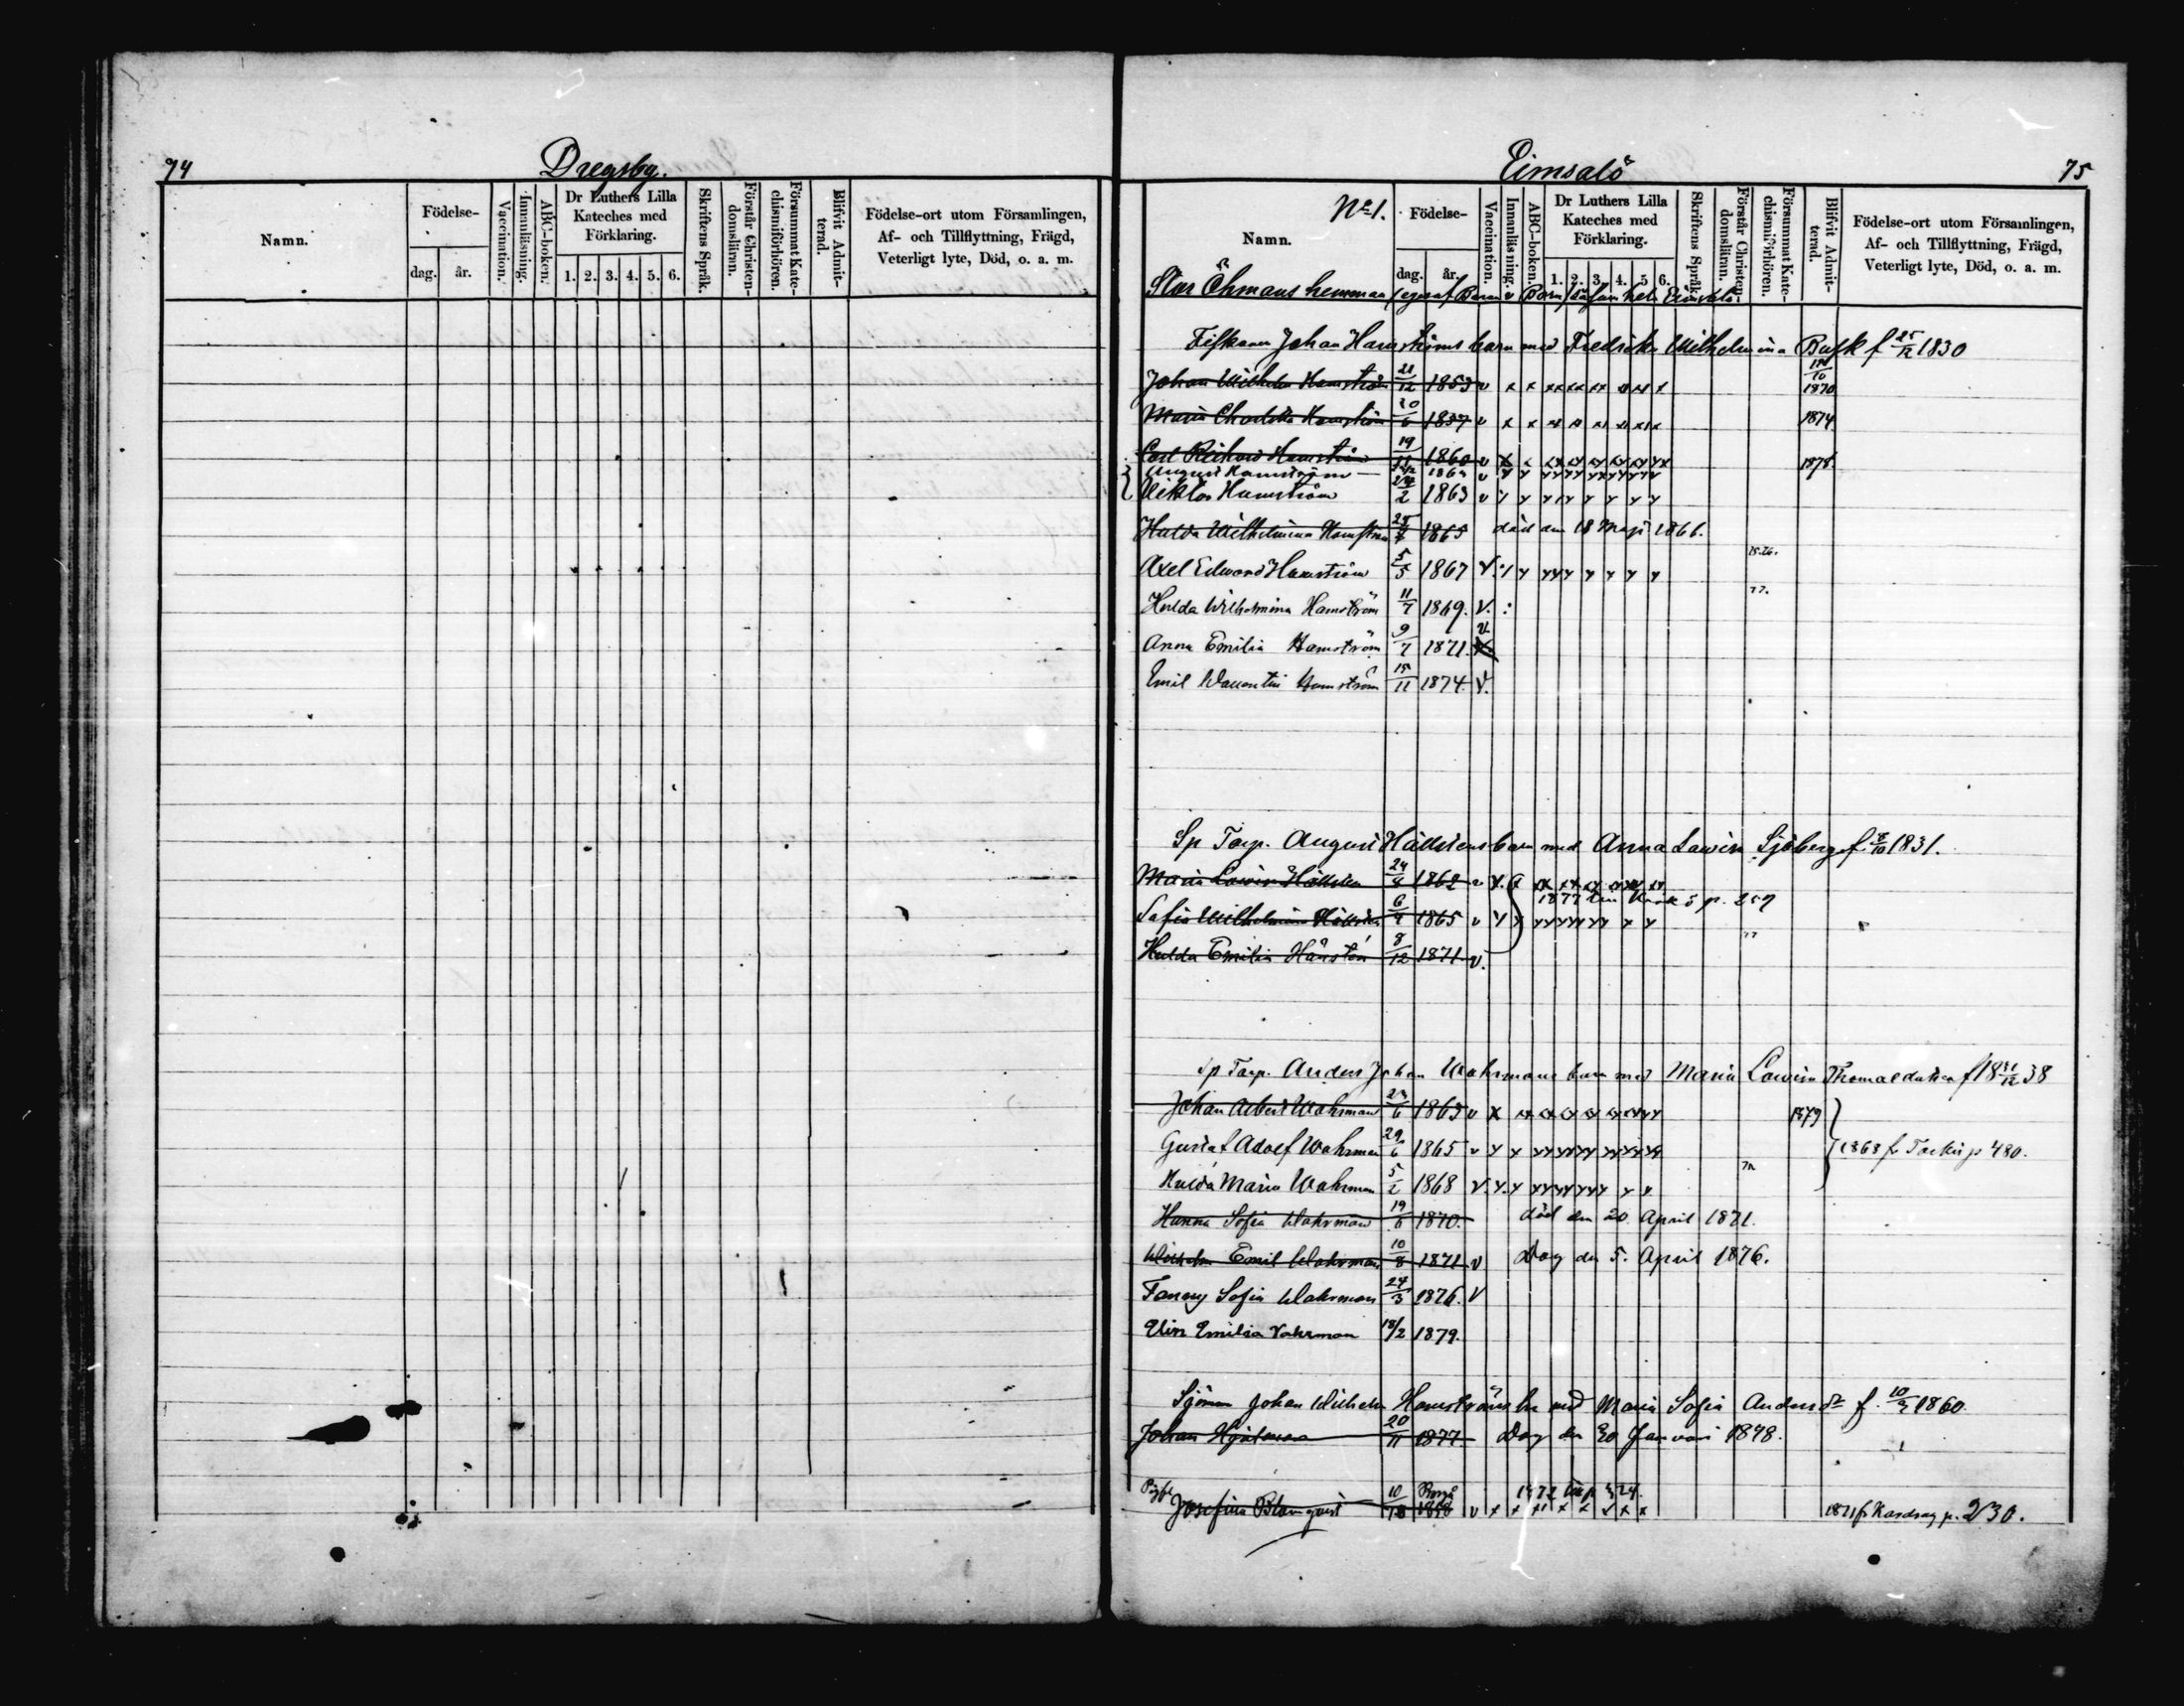 74
Dregsby.
Namn.
Födelse-
dag. år.
Vaccination.
Innanläsning.
ABC-boken.
Dr Luthers Lilla
Kateches med
Förklaring.
1. 2. 3. 4. 5. 6.
Skriftens Språk.
Förstår Christen-
domsläran.
Försummat Kate-
chismiförhören.
Blifvit Admit-
terad.
Födelse-ort utom Församlingen,
Af- och Tillflyttning, Frägd,
Veterligt lyte, Död, o. a. m.
Eimsalö
75
No 1.
Namn.
Födelse-
dag. år.
Vaccination.
Innanläsning.
ABC-boken.
Dr Luthers Lilla
Kateches med
Förklaring.
1. 2. 3. 4. 5 6.
Skriftens Språk.
Förstår Christen-
domsläran.
Försummat Kate-
chismiförhören.
Blifvit Admit-
terad.
Födelse-ort utom Församlingen,
Af- och Tillflyttning, Frägd,
Veterligt lyte, Död, o. a. m.
Stor Öhmans hemman
Fiskaren Johan Hamströms barn med Fredrika Wilhelmina Busk f 25/12 1830
Johan Wilhelm Hamström 21/12 1853 v x x xx xx xx xx x 1870
Maria Charlotta Hamström 20/6 1857 v x x 1874
Carl Richard Hamström 19/11 1860 v x 1878
August Hamström v
Viktor Hamström 2 1863 v
Hulda Wilhelmina Hamström 25 1865 död den 18 Maji 1866.
Axel Edward Hamström 5/5 1867 V 75.76.
Hulda Wilhelmina Hamström 11/7 1869. V. : 77.
Anna Emilia Hamström 9/7 1871. V
Emil Walentin Hamström 15/11 1874. V.
Sp Torp. August Hällstens barn med Anna Lovisa Sjöberg f 8/10 1831.
Maria Lovisa Hällsten 24/8 1862 v
1877 till p. 259
Sofia Wilhelmina Hällsten 6/4 1865 v
Hulda Emilia Hällstén 8/12 1871 v. 77
Sp Torp. Anders Johan Wahrmans barn med Maria Lovisa Thomasdotter f 18 21/12 38
Johan Albert Wahrman 23/6 1863 v x 1879
Gustaf Adolf Wahrman 29/6 1865 v 1868 fr p 480.
Hulda Maria Wahrman 5/2 1868 V.
Hanna Sofia Wahrman 19/6 1870. död den 20 April 1871.
Wilhelm Emil Wahrman 10/8 1871 v Dog den 5. April 1876.
Fanny Sofia Wahrman 24/3 1876. V
Elin Emilia Vahrman 18/2 1879.
Sjöman Johan Wilhelm Hamströms bn med Maria Sofia Andersdr f. 10/9 1860.
Johan Hjalmar 20/11 1877 Dog den 30 Januari 1878.
Borgå
Josefina Blomqvist 10 v x x x x x x x 1871 fr Kardrag p. 230.